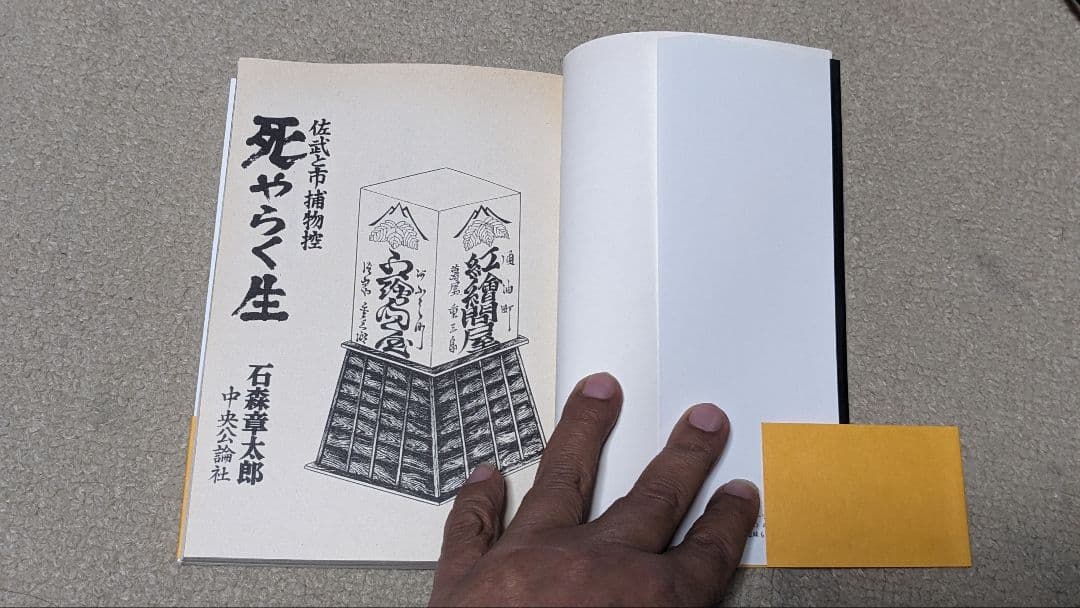 佐武と市捕物控
死やらく生
石森章太郎
中央公論社
通油町
紅繪問屋
蔦屋重三郎